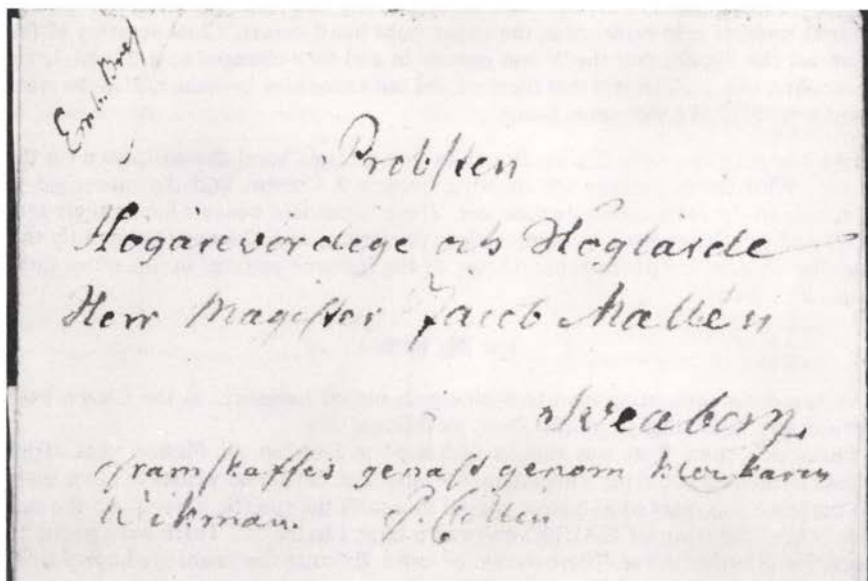 Enk. Bref
Probsten
Högärevördige och Höglärde
Herr Magister Jacob Mallén
Sveaborg
framskaffes genast genom
Wikman.